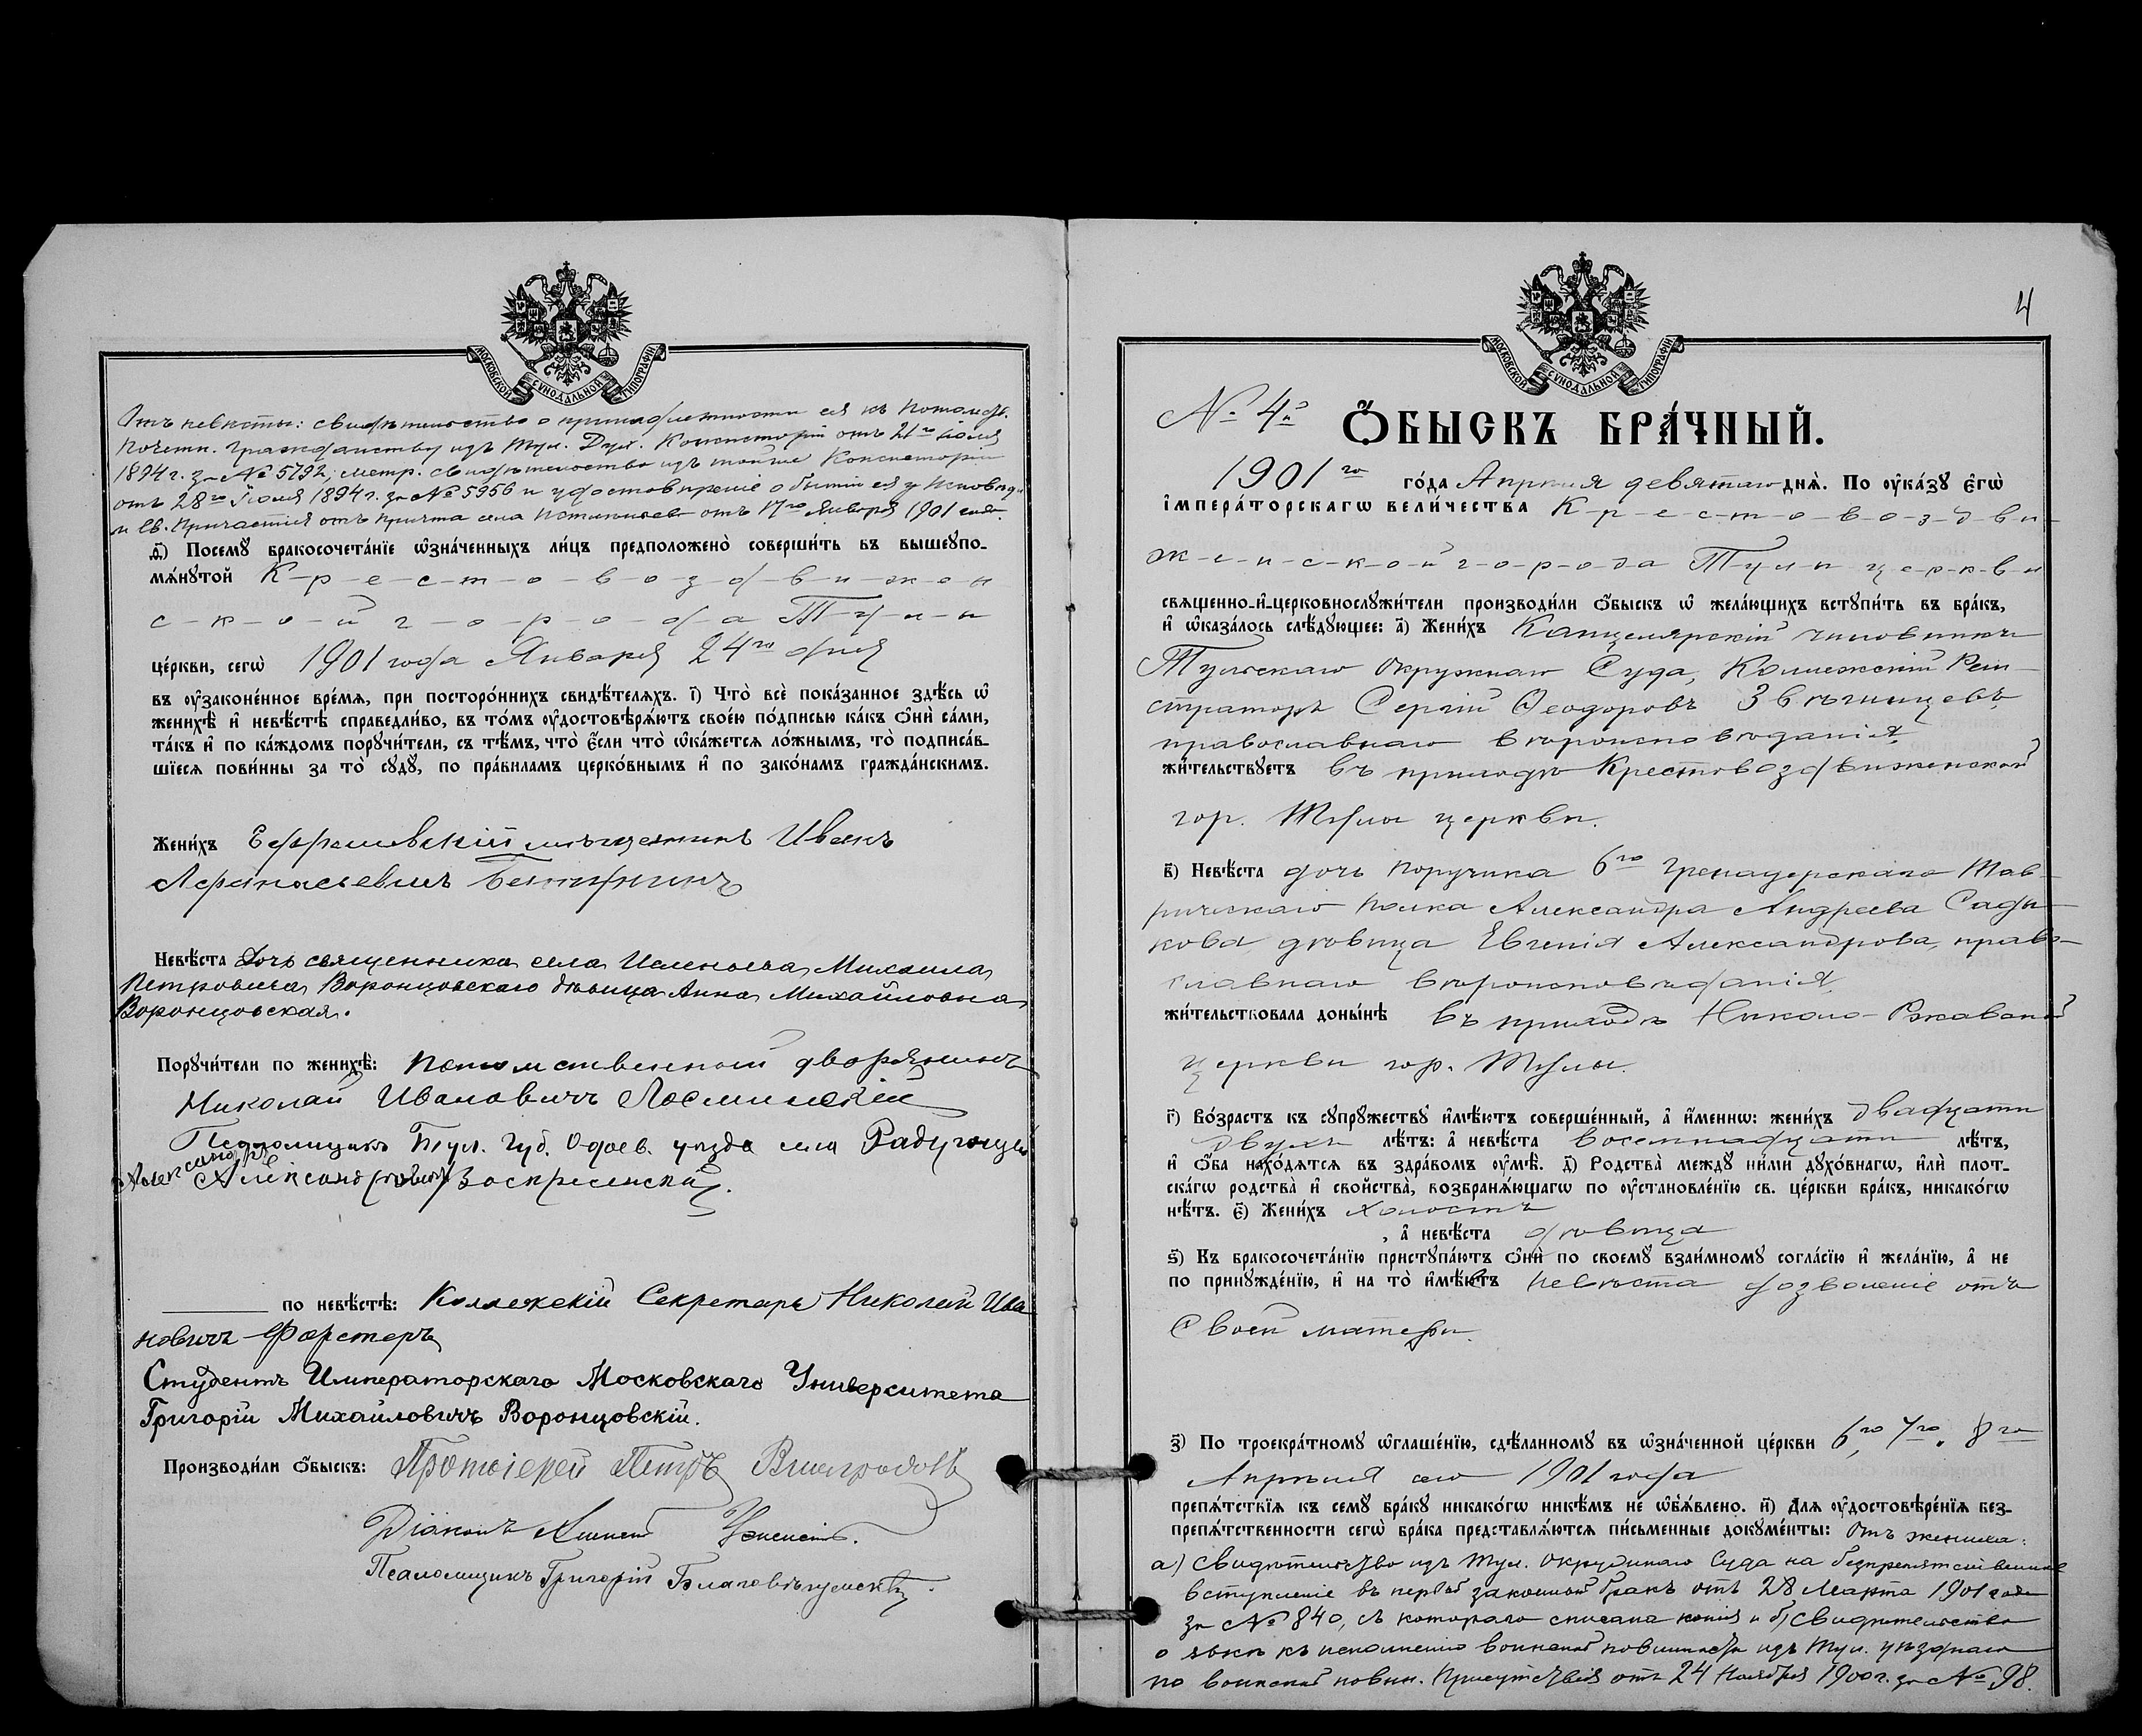 МОСКОВСКОЙ СУНОДАЛЬНОЙ ТИПОГРАФІИ
Отъ невѣсты: свидѣтельство о принадлежности ея къ Потомств.
Почетн. Гражданству изъ Тул. Дух. Консисторіи отъ 21го Іюля
1894 г. за № 5792, метр. свидѣтельство изъ той же Консисторіи
отъ 28го Іюля 1894 г. за № 5956 и удостовѣреніе о бытіи ея у Исповѣди
и Св. Причастія отъ причта села отъ 17го Января 1901 года.
д҃) Посемꙋ̀ бракосочета́нїе ѡ҆зна́ченныхъ ли́цъ предположено̀ соверши́ть въ вышеꙋпо-
мѧ́нꙋтой К-р-е-с-т-о-в-о-з-д-в-и-ж-е-н
с-к-о-й г-о-р-о-д-а Т-у-л-ы
це́ркви, сегѡ̀ 1901 года Января 24го дня
въ ᲂу҆зако́ненное вре́мѧ, при посторо́ннихъ свидѣ́телѧхъ. і҃) Что̀ всѐ пока́занное здѣ́сь ѡ҆
женихѣ̀ и҆ невѣ́стѣ справедли́во, въ то́мъ ᲂу҆достовѣрѧ́ютъ свое́ю по́дписью ка́къ ѻ҆нѝ са́ми,
та́къ и҆ по ка́ждомъ порꙋчи́тели, съ тѣ́мъ, что̀ є҆́сли что̀ ѡ҆ка́жетсѧ ло́жнымъ, то̀ подписа́в-
шїесѧ пови́нны за то̀ сꙋдꙋ̀, по пра́виламъ церко́внымъ и҆ по зако́намъ гражда́нскимъ.
Жени́хъ Ефремовскій мѣщанинъ Иванъ
Афанасьевичъ
Невѣ́ста Дочь священника села Михаила
Петровича Воронцовскаго дѣвица Анна Михайловна
Воронцовская.
Порꙋчи́тели по женихѣ̀: потомственный дворянинъ
Николай Ивановичъ
Псаломщикъ Тул. Губ. Одоев. уѣзда села
Александръ Александровичъ Воскресенскій.
по невѣ́стѣ: Коллежскій Секретарь Николай Ива
новичъ Форстеръ
Студентъ Императорскаго Московскаго Университета
Григорій Михайловичъ Воронцовскій.
Производи́ли ѻ҆́быскъ: Протоіерей Петръ Виноградовъ
Діаконъ
Псаломщикъ Григорій Благовѣщенскій.
4
МОСКОВСКОЙ СУНОДАЛЬНОЙ ТИПОГРАФІИ
№ 4й
Ѻ҆́БЫСКЪ БРА́ЧНЫЙ.
1901го го́да Апрѣля девятаго днѧ̀. По ᲂу҆ка́зꙋ є҆гѡ̀
і҆мпера́торскагѡ вели́чества К-р-е-с-т-о-в-о-з-д-в-и-
ж-е-н-с-к-о-й г-о-р-о-д-а Т-у-л-ы ц-е-р-к-в-и
свѧщенно-и҆-церковнослꙋжи́тели производи́ли ѻ҆́быскъ ѡ҆ жела́ющихъ встꙋпи́ть въ бра́къ,
и҆ ѡ҆каза́лось слѣ́дꙋющее: а҃) Жени́хъ Канцелярскій чиновникъ
Тульскаго Окружнаго Суда, Коллежскій Реги-
страторъ Сергій Ѳеодоровъ Звѣгинцевъ,
православнаго вѣроисповѣданія,
жи́тельствꙋетъ въ приходѣ Крестовоздвиженской
гор. Тулы церкви.
в҃) Невѣ́ста дочь поручика 6го гренадерскаго Тав-
рическаго полка Александра Андреева Сады-
кова дѣвица Евгенія Александрова, право-
славнаго вѣроисповѣданія,
жи́тельствовала доны́нѣ въ приходѣ Николо-Ржавской
церкви гор. Тулы.
г҃) Во́зрастъ къ сꙋпрꙋ́жествꙋ и҆мѣ́ютъ соверше́нный, а҆ и҆́менно: жени́хъ двадцати
двухъ лѣ́тъ: а҆ невѣ́ста восемнадцати лѣ́тъ,
и҆ ѻ҆́ба нахо́дѧтсѧ въ здра́вомъ ᲂу҆мѣ̀. д҃) Родства̀ междꙋ̀ ни́ми дꙋхо́внагѡ, и҆лѝ плот-
ска́гѡ родства̀ и҆ сво́йства, возбранѧ́ющагѡ по ᲂу҆становле́нїю св. це́ркви бра́къ, никако́гѡ
нѣ́тъ. є҃) Жени́хъ холостъ
, а҆ невѣ́ста дѣвица
ѕ҃) Къ бракосочета́нїю пристꙋпа́ютъ ѻ҆нѝ по своемꙋ̀ взаи́мномꙋ согла́сїю и҆ жела́нїю, а҆ не
по принꙋжде́нїю, и҆ на то̀ и҆мѣ́ютъ невѣста дозволеніе отъ
своей матери.
з҃) По троекра́тномꙋ ѡ҆глаше́нїю, сдѣ́ланномꙋ въ ѡ҆зна́ченной це́ркви 6го, 7го, 8го
Апрѣля сего 1901 года
препѧ́тствїѧ къ семꙋ̀ бра́кꙋ никако́гѡ никѣ́мъ не ѡ҆б̾ѧ́влено. и҃) Длѧ ᲂу҆достовѣре́нїѧ без-
препѧ́тственности сегѡ̀ бра́ка представлѧ́ютсѧ пи́сьменные докꙋме́нты: Отъ жениха:
а) свидѣтельство изъ Тул. Окружнаго Суда на безпрепятственное
вступленіе въ первый законный бракъ отъ 28 Марта 1901 года
за № 840, съ котораго списана копія и б) свидѣтельство
о явкѣ къ исполненію воинской повинности изъ Тул. уѣзднаго
по воинской повин. Присутствія отъ 24 Ноября 1900 г. за № 98.